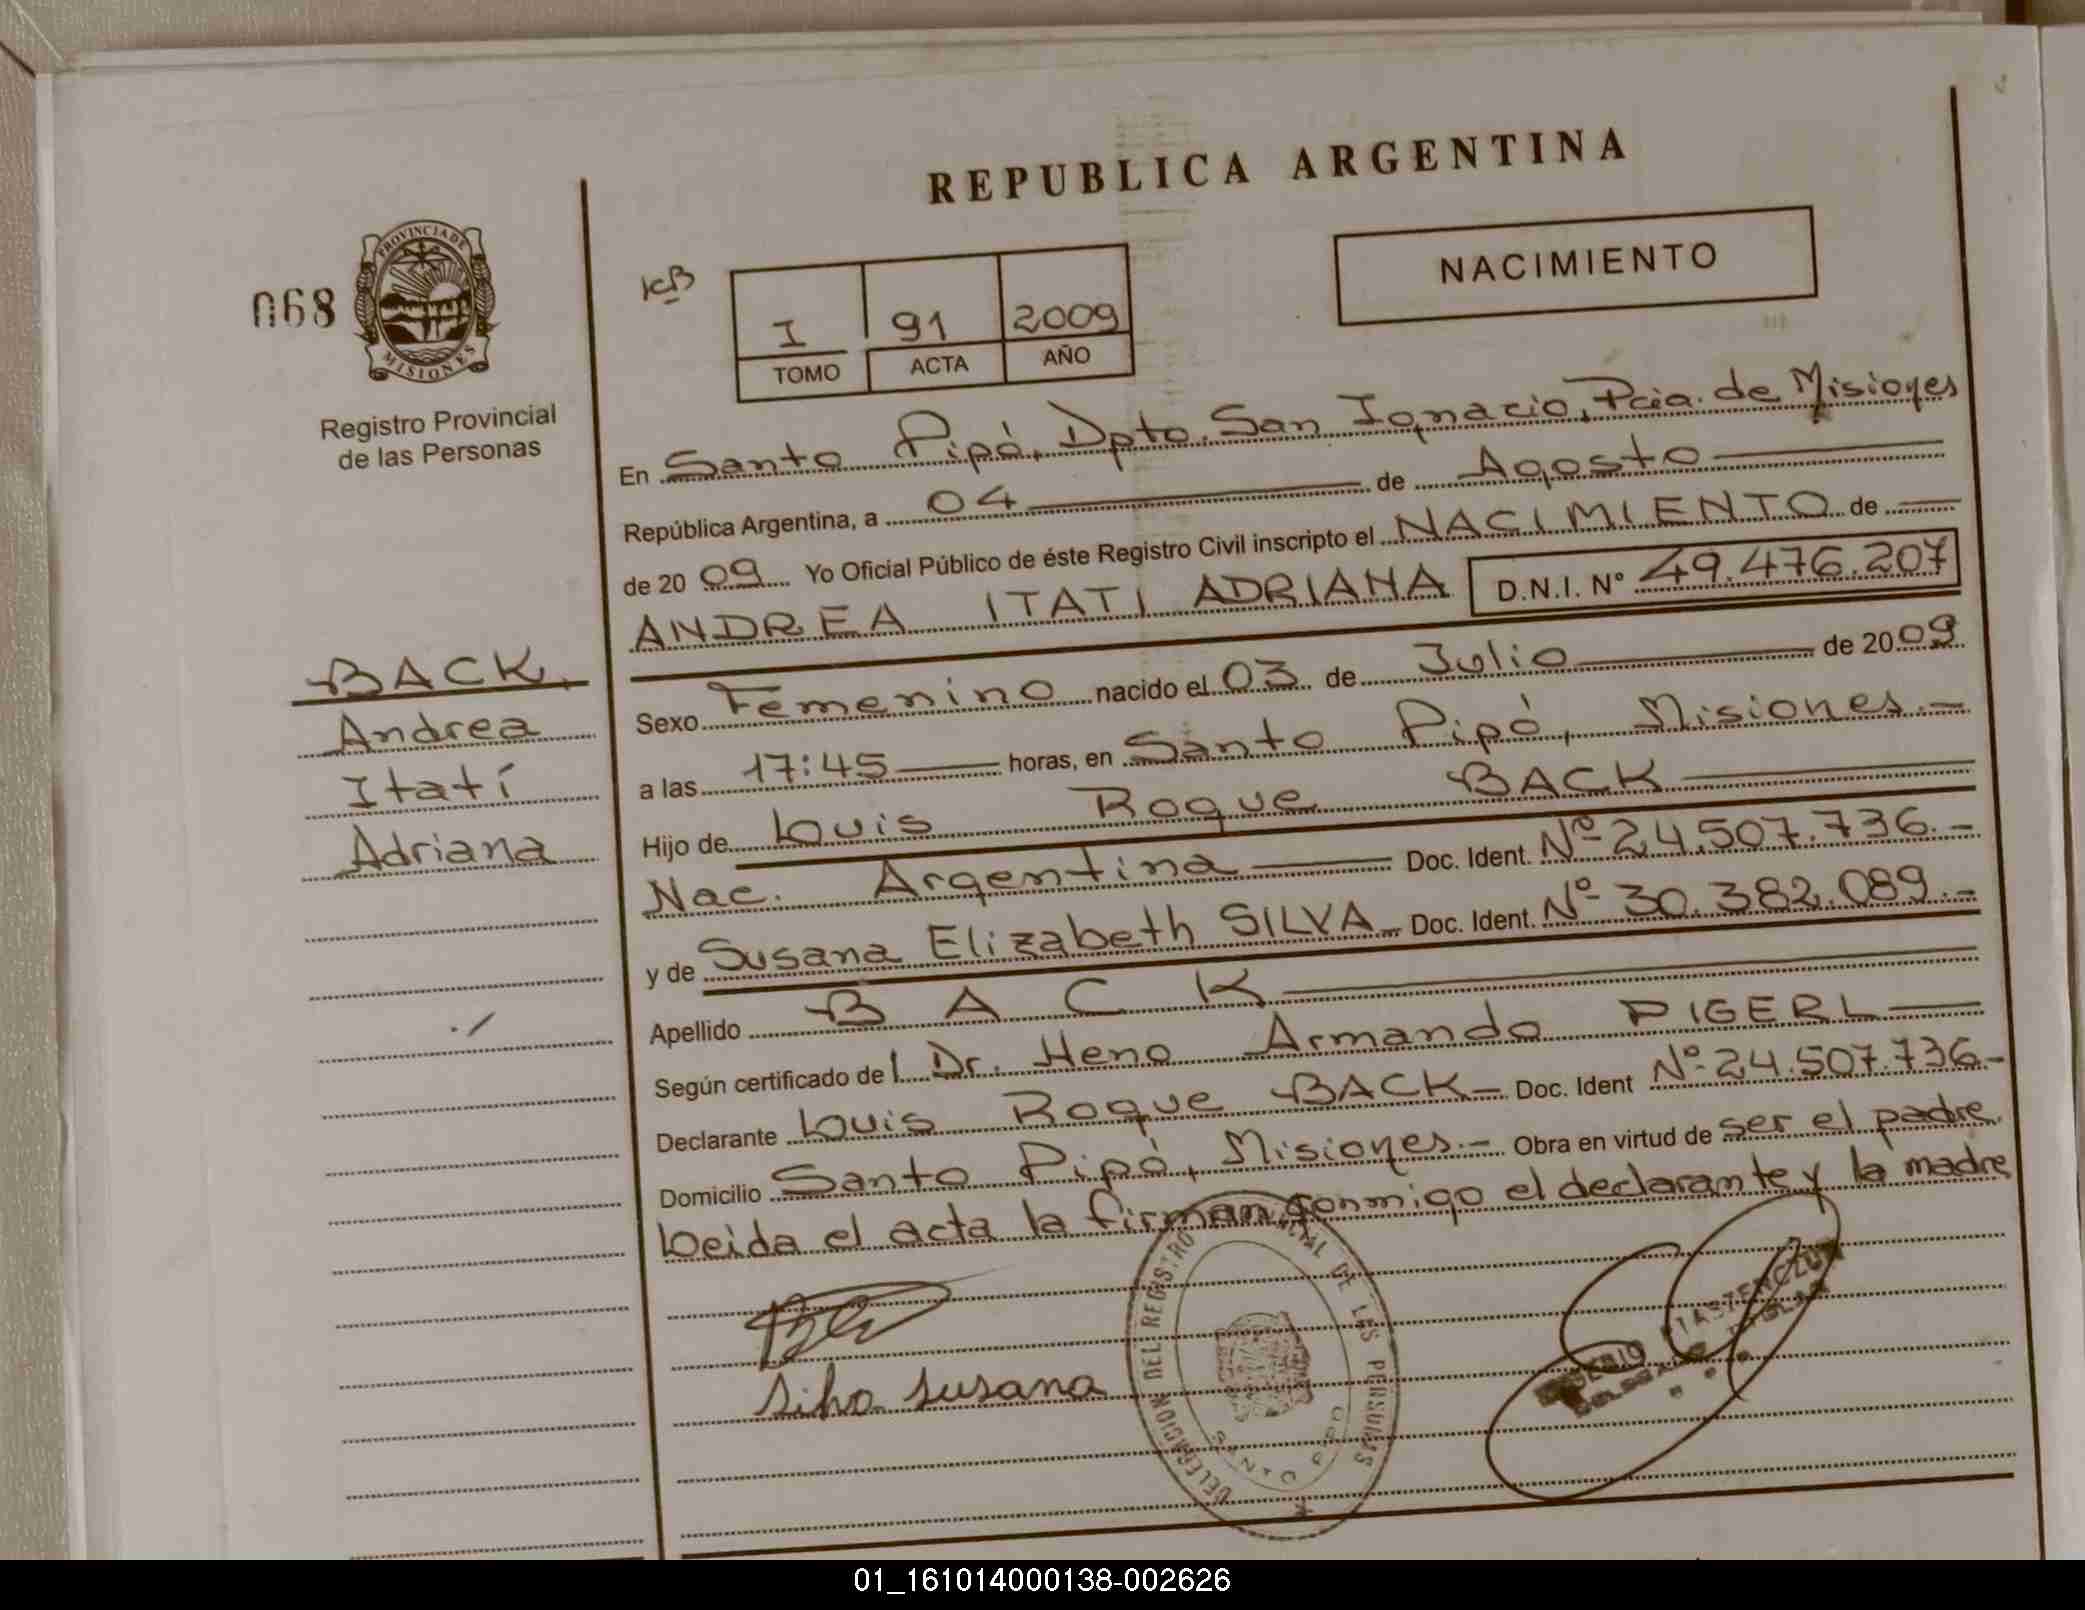 REPUBLICA ARGENTINA
NACIMIENTO
068
PROVINCIA DE
MISIONES
Registro Provincial
de las Personas
I 91 2009
TOMO ACTA AÑO
En Santo Pipó, Dpto. San Ignacio, Pcia. de Misiones
República Argentina, a 04 de Agosto
de 2009 Yo Oficial Público de éste Registro Civil inscripto el NACIMIENTO de
ANDREA ITATI ADRIANA D.N.I. N° 49.476.207
BACK,
Andrea
Itatí
Adriana
Sexo Femenino nacido el 03 de Julio de 2009
a las 17:45 horas, en Santo Pipó, Misiones.-
Hijo de Luis Roque BACK
Nac. Argentina Doc. Ident. Nº 24.507.736.-
y de Susana Elizabeth SILVA Doc. Ident. Nº 30.382.089.-
Apellido BACK
Según certificado del Dr. Heno Armando PIGERL
Declarante Luis Roque BACK- Doc. Ident Nº 24.507.736-
Domicilio Santo Pipó, Misiones.- Obra en virtud de ser el padre
Leida el acta la firman conmigo el declarante y la madre
Silva Susana
DELEGACION DEL REGISTRO PROVINCIAL DE LAS PERSONAS
SANTO PIPO
01_161014000138-002626